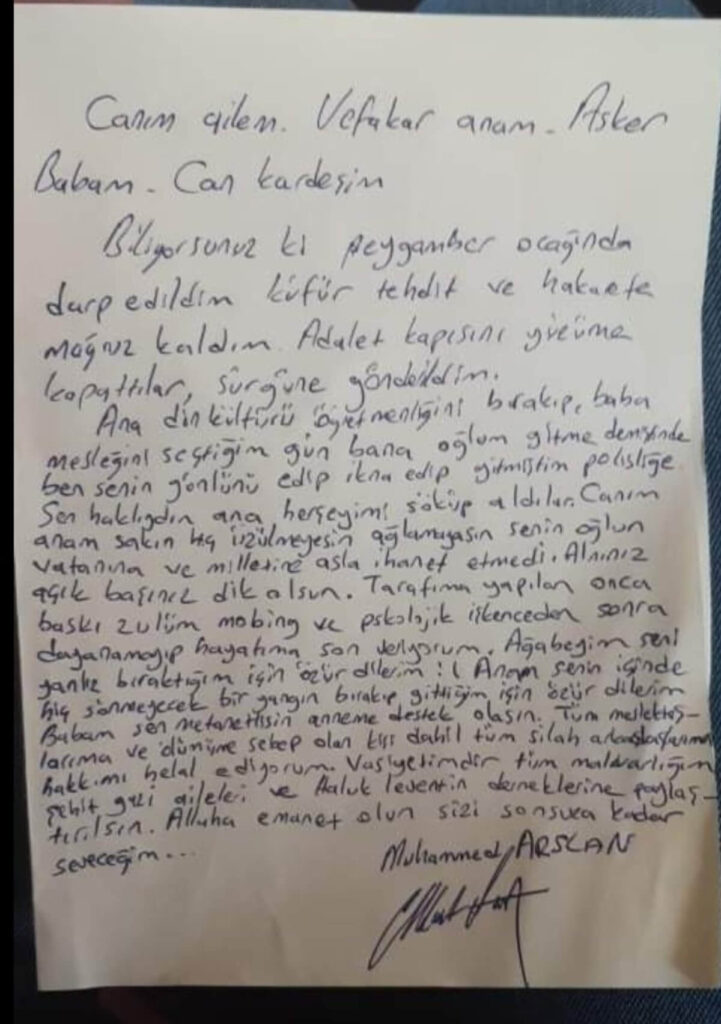 Canım ailem. Vefakar anam. Asker
Babam. Can kardeşim
Biliyorsunuz ki peygamber ocağında
darp edildim küfür tehdit ve hakarete
mağruz kaldım. Adalet kapısını yüzüme
kapattılar, sürgüne gönderildim.
Ana din kültürü öğretmenliğini bırakıp, baba
mesleğini seçtiğim gün bana oğlum gitme demiştinde
ben senin gönlünü edip ikna edip gitmiştim polisliğe
Sen haklıydın ana herşeyimi söküp aldılar. Canım
anam sakın hiç üzülmeyesin ağlamayasın senin oğlun
vatanına ve milletine asla ihanet etmedi. Alnınız
açık başınız dik olsun. Tarafıma yapılan onca
baskı zulüm mobing ve pskolojik işkenceden sonra
dayanamayıp hayatıma son veriyorum. Ağabeyim seni
yanlız bıraktığım için özür dilerim :( Anam senin içinde
hiç sönmeyecek bir yangın bırakıp gittiğim için özür dilerim
Babam sen metanetlisin anneme destek olasın. Tüm meslektaş-
larıma ve ölümüme sebep olan kişi dahil tüm silah arkadaşlarıma
hakkımı helal ediyorum. Vasiyetimdir tüm malvarlığım
şehit gazi aileleri ve Haluk leventin derneklerine paylaş-
tırılsın. Allaha emanet olun sizi sonsuza kadar
seveceğim...
Muhammed ARSLAN